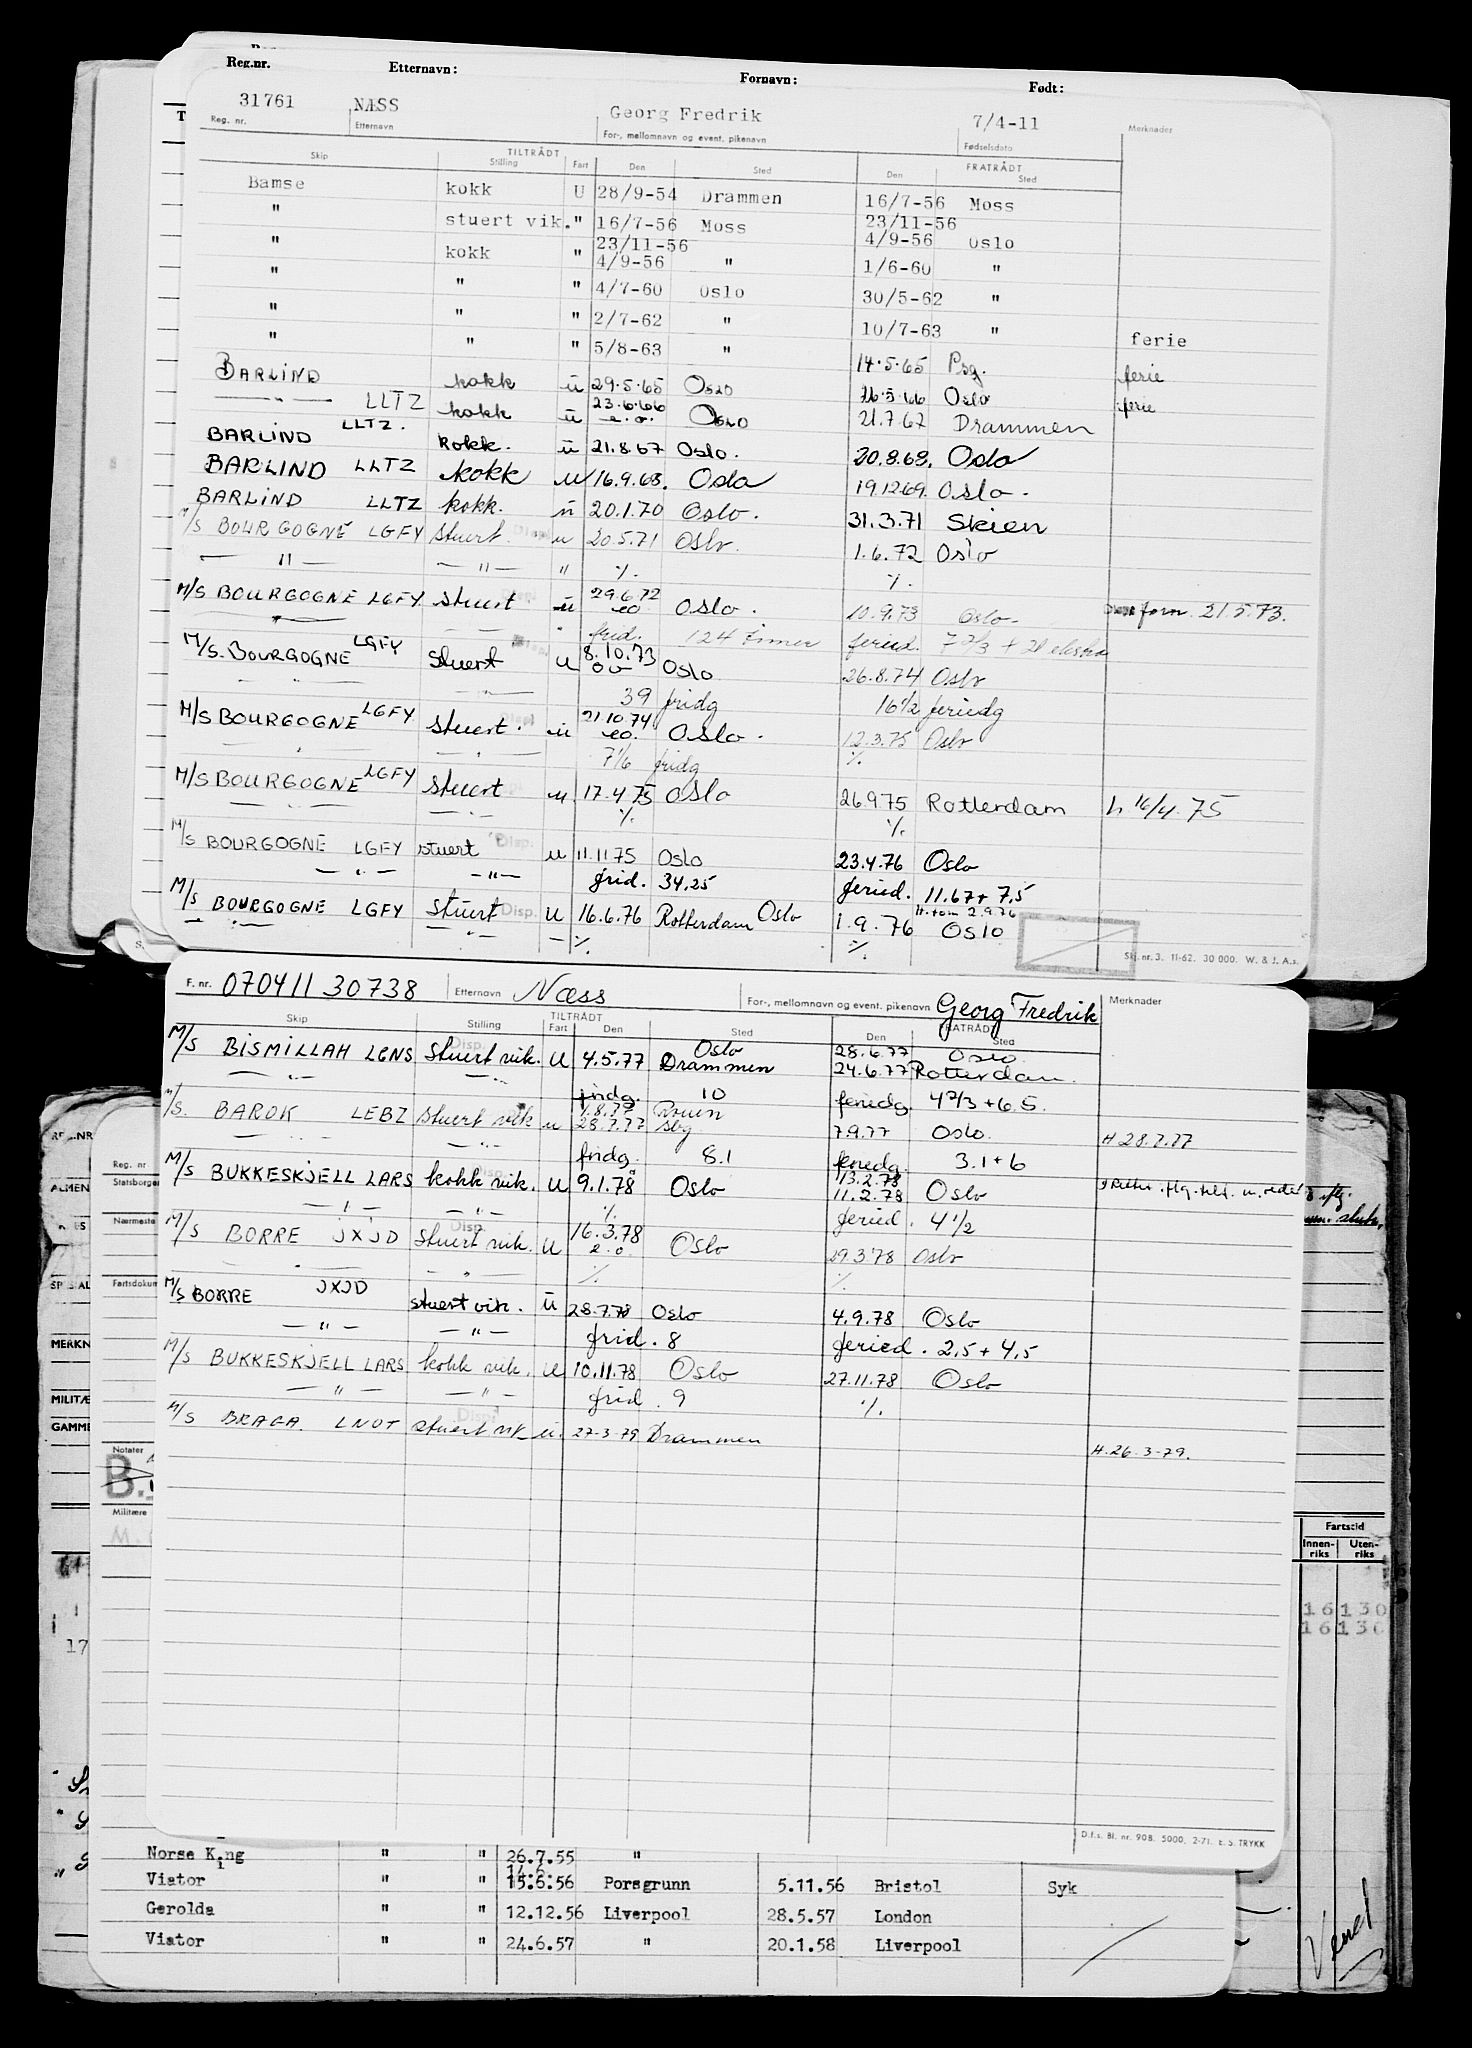 Reg.nr. Etternavn: Fornavn: Født:
31761 NÆSS Georg Fredrik 7/4-11
Reg. nr. Etternavn For-, mellomnavn og event. pikenavn Fødselsdato Merknader
TILTRÅDT FRATRÅDT
Skip Stilling Fart Den Sted Den Sted
Bamse kokk U 28/9-54 Drammen 16/7-56 Moss
" stuert vik. " 16/7-56 Moss 23/11-56
" kokk " 23/11-56 4/9-56 Oslo
4/9-56 " 1/6-60 "
" " " 4/7-60 Oslo 30/5-62 "
" " " 2/7-62 " 10/7-63 " ferie
" " " 5/8-63 " 14.5.65 Psg. ferie
BARLIND kokk u 29.5.65 Oslo 26.5.66 Oslo ferie
— " — LLTZ kokk u 23.6.66 e.o. Oslo 21.7.67 Drammen
BARLIND LLTZ. kokk. u 21.8.67 Oslo. 20.8.68. Oslo
BARLIND LLTZ kokk u 16.9.68. Oslo 19.12.69. Oslo.
BARLIND LLTZ kokk. u 20.1.70 Oslo. 31.3.71 Skien
M/S BOURGOGNE LGFY stuert. Disp. u 20.5.71 Oslo. 1.6.72 Oslo
— " — — " — " %. %.
M/S BOURGOGNE LGFY stuert u 29.6.72 eo Oslo. 10.9.73 Oslo. forn. 21.5.73.
frid. 124 timer feried. 7 2/3 + 20 ekstra
M/S. BOURGOGNE LGFY stuert u 8.10.73 Oslo 26.8.74 Oslo
39 fridg 16 1/2 feriedg
M/S BOURGOGNE LGFY stuert. u 21.10.74 eo. Oslo. 12.3.75 Oslo
7 1/6 fridg %
M/S BOURGOGNE LGFY stuert u 17.4.75 Oslo 26.9.75 Rotterdam h 16/4.75
— " — %. %.
M/S BOURGOGNE LGFY stuert Disp. u 11.11.75 Oslo 23.4.76 Oslo
— " — — " — frid. 34,25 feried. 11.67 + 7,5
M/S BOURGOGNE LGFY stuert Disp. U 16.6.76 Rotterdam Oslo 1.9.76 Oslo
H. tom 2.9.76
— " — — " — — %. %.
Skj. nr. 3. 11-62. 30 000. W. & J. A.s.
F. nr. 070411 30738 Etternavn Næss For-, mellomnavn og event. pikenavn Georg Fredrik Merknader
TILTRÅDT FRATRÅDT
Skip Stilling Fart Den Sted Den Sted
M/S BISMILLAH LGNS Stuert vik. U 4.5.77 Oslo Drammen 28.6.77 Oslo
24.6.77 Rotterdam.
fridg. 10 feriedg. 4 2/3 + 6.5.
M/S. BAROK LEBZ stuert vik u 1.8.77 Rouen
28.7.77 Sbg. 7.9.77 Oslo. H 28.7.77
fridg. 8.1 feriedg. 3.1 + 6
M/S BUKKESKJELL LARS kokk vik. U 9.1.78 Oslo 13.2.78
11.2.78 Oslo
— " — — " — %. feried. 4 1/2
M/S BORRE JXJD Stuert vik. U 16.3.78 e.o. Oslo 29.3.78 Oslo
%. %.
M/S BORRE JXJD stuert vik. U 28.7.78 Oslo 4.9.78 Oslo
— " — — " — frid. 8 feried. 2,5 + 4,5
M/S BUKKESKJELL LARS kokk vik. U 10.11.78 Oslo 27.11.78 Oslo
— " — — " — frid. 9 %.
M/S BRAGA. LNOT stuert vik u. 27-3-79 Drammen H. 26.3-79.
D.f.s. Bl. nr. 90B. 5000. 2-71. E. S. TRYKK
Reg. nr
Statsborger
Nærmeste
Fartsdokum
MERKN
MILITÆ
GAMME
Notater
B.
Militære
Fartstid
Innenriks Utenriks
16 130
16 130
17
Norse King " " 26.7.55 "
14.6.
Viator " " 15.6.56 Porsgrunn 5.11.56 Bristol Syk
Gerolda " " 12.12.56 Liverpool 28.5.57 London
Viator " " 24.6.57 " 20.1.58 Liverpool